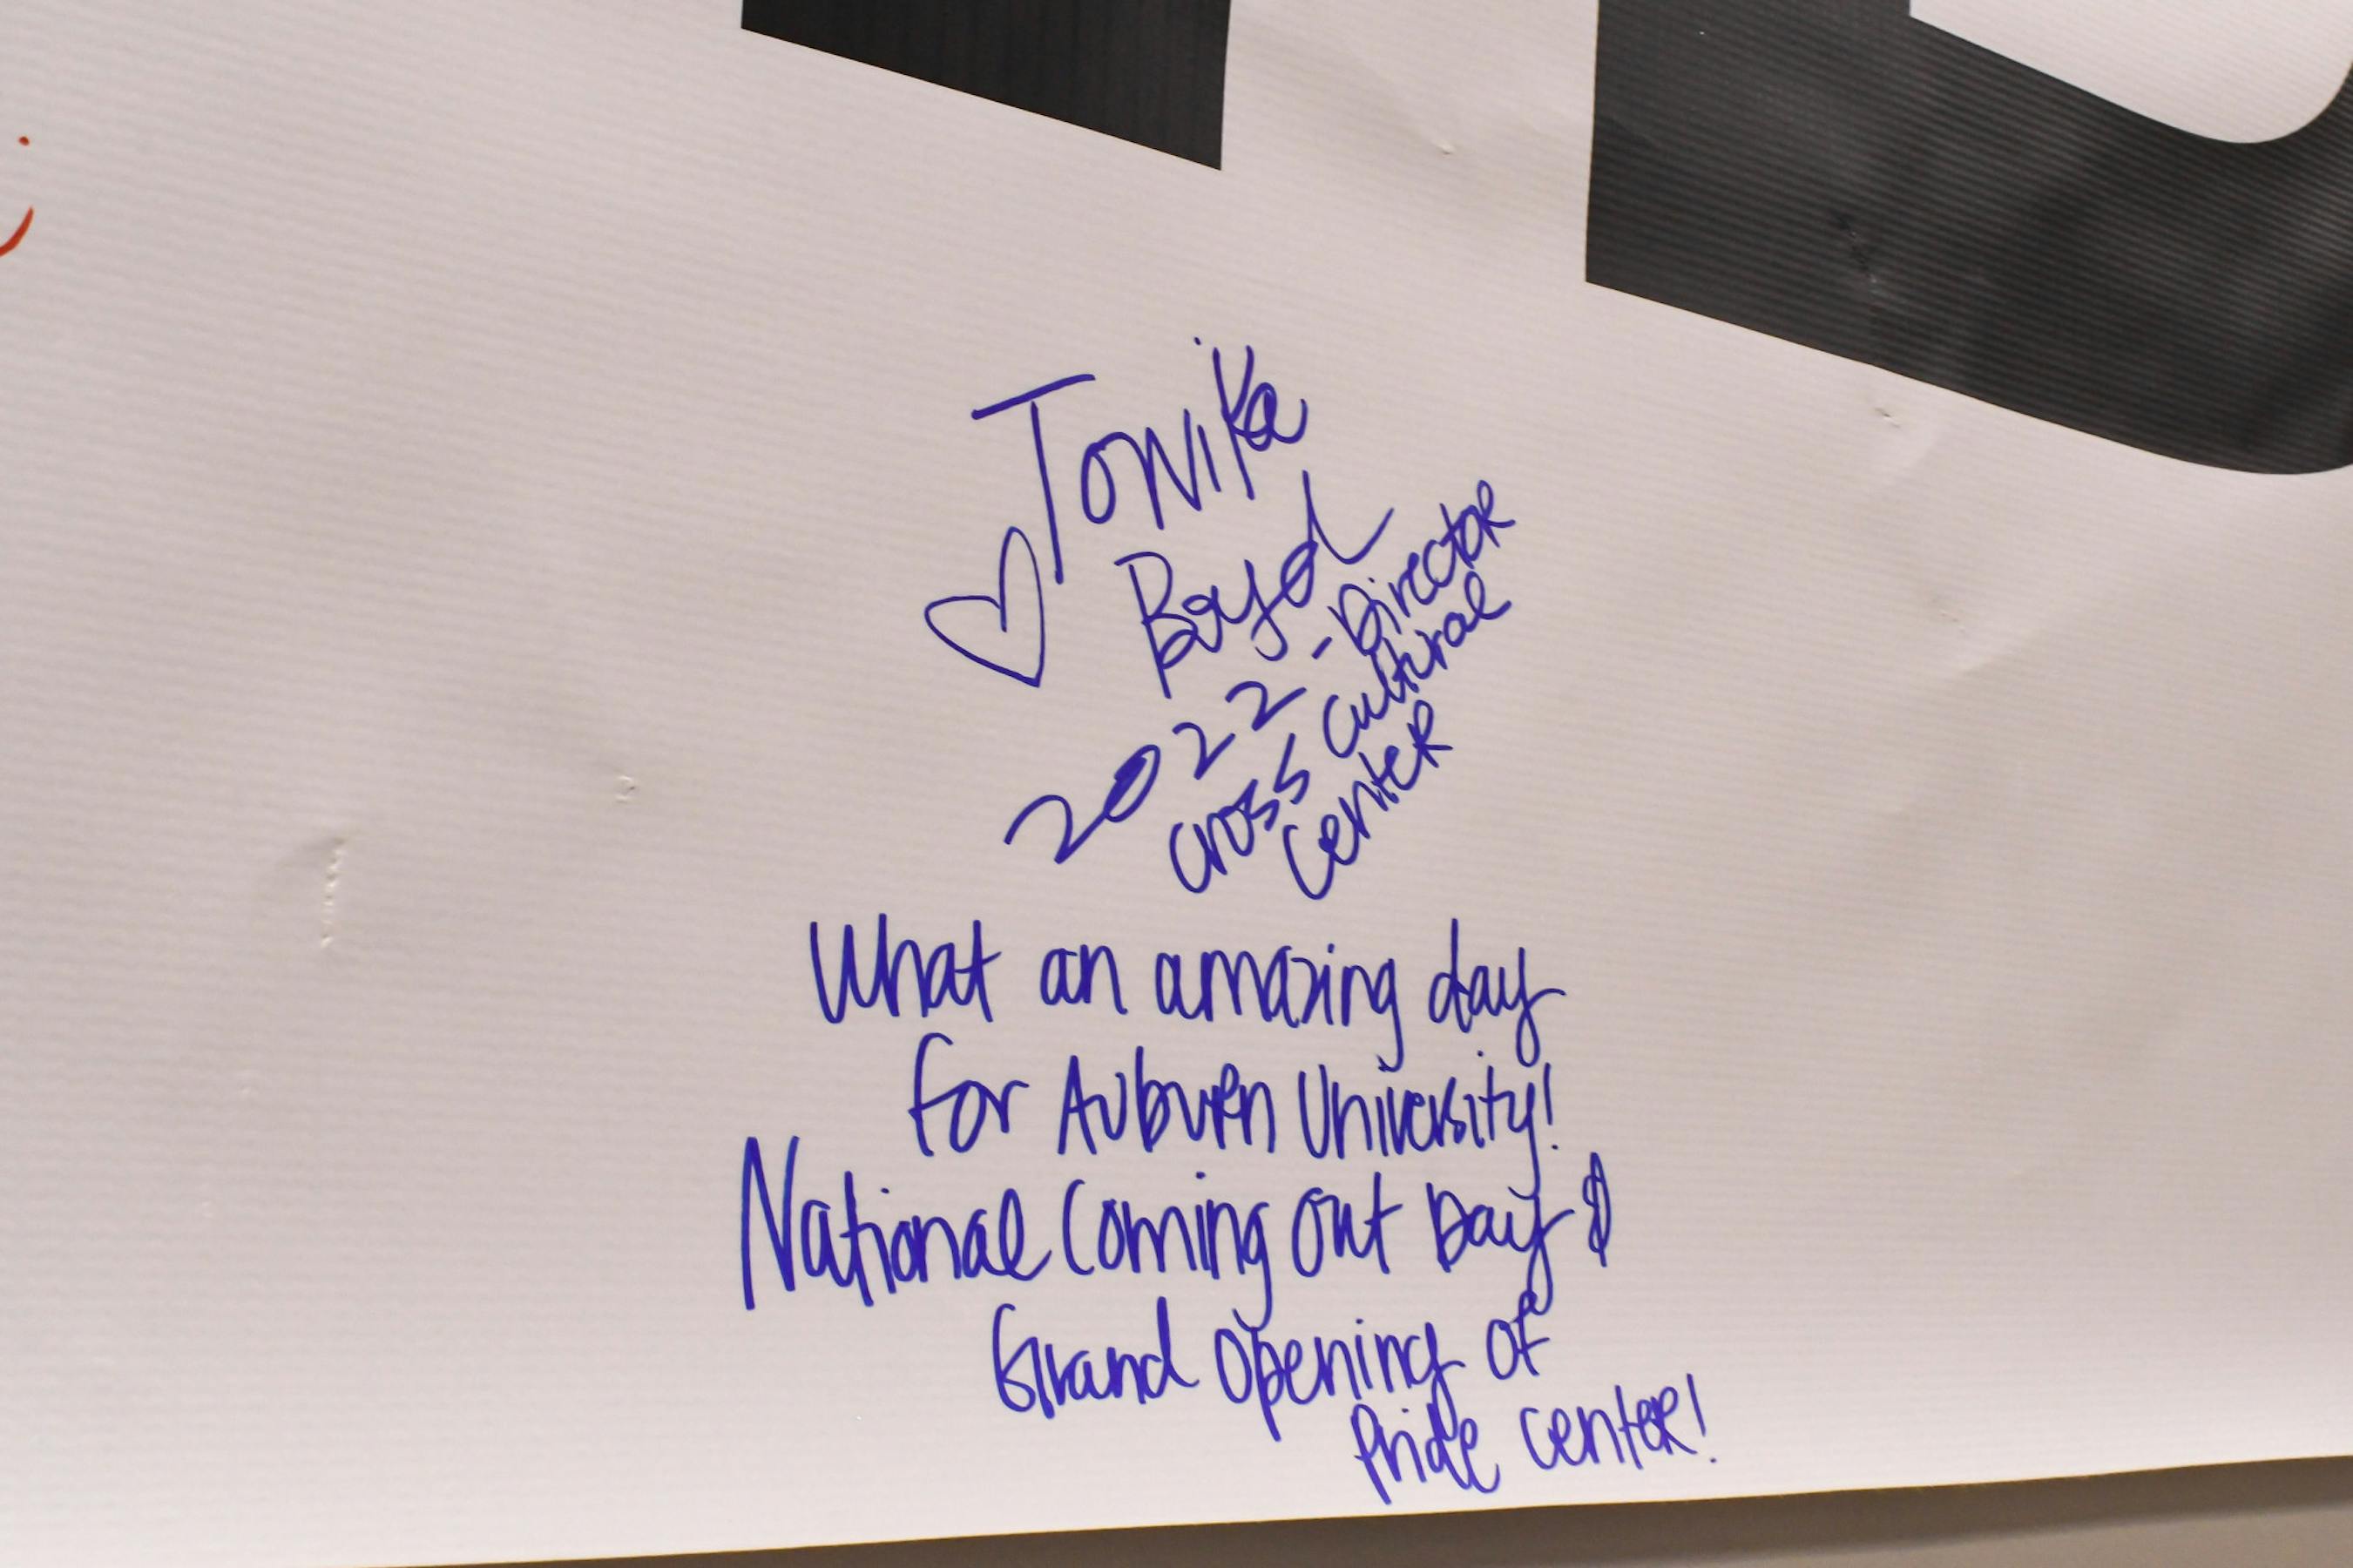 Tonika
♡ Boyd
2022 - Director
Cross Cultural
Center
What an amazing day
for Auburn University!
National Coming Out Day &
Grand Opening of
Pride Center!